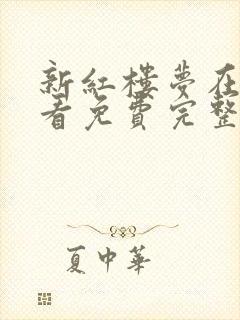 新紅樓夢在
看免費完整
夏中華